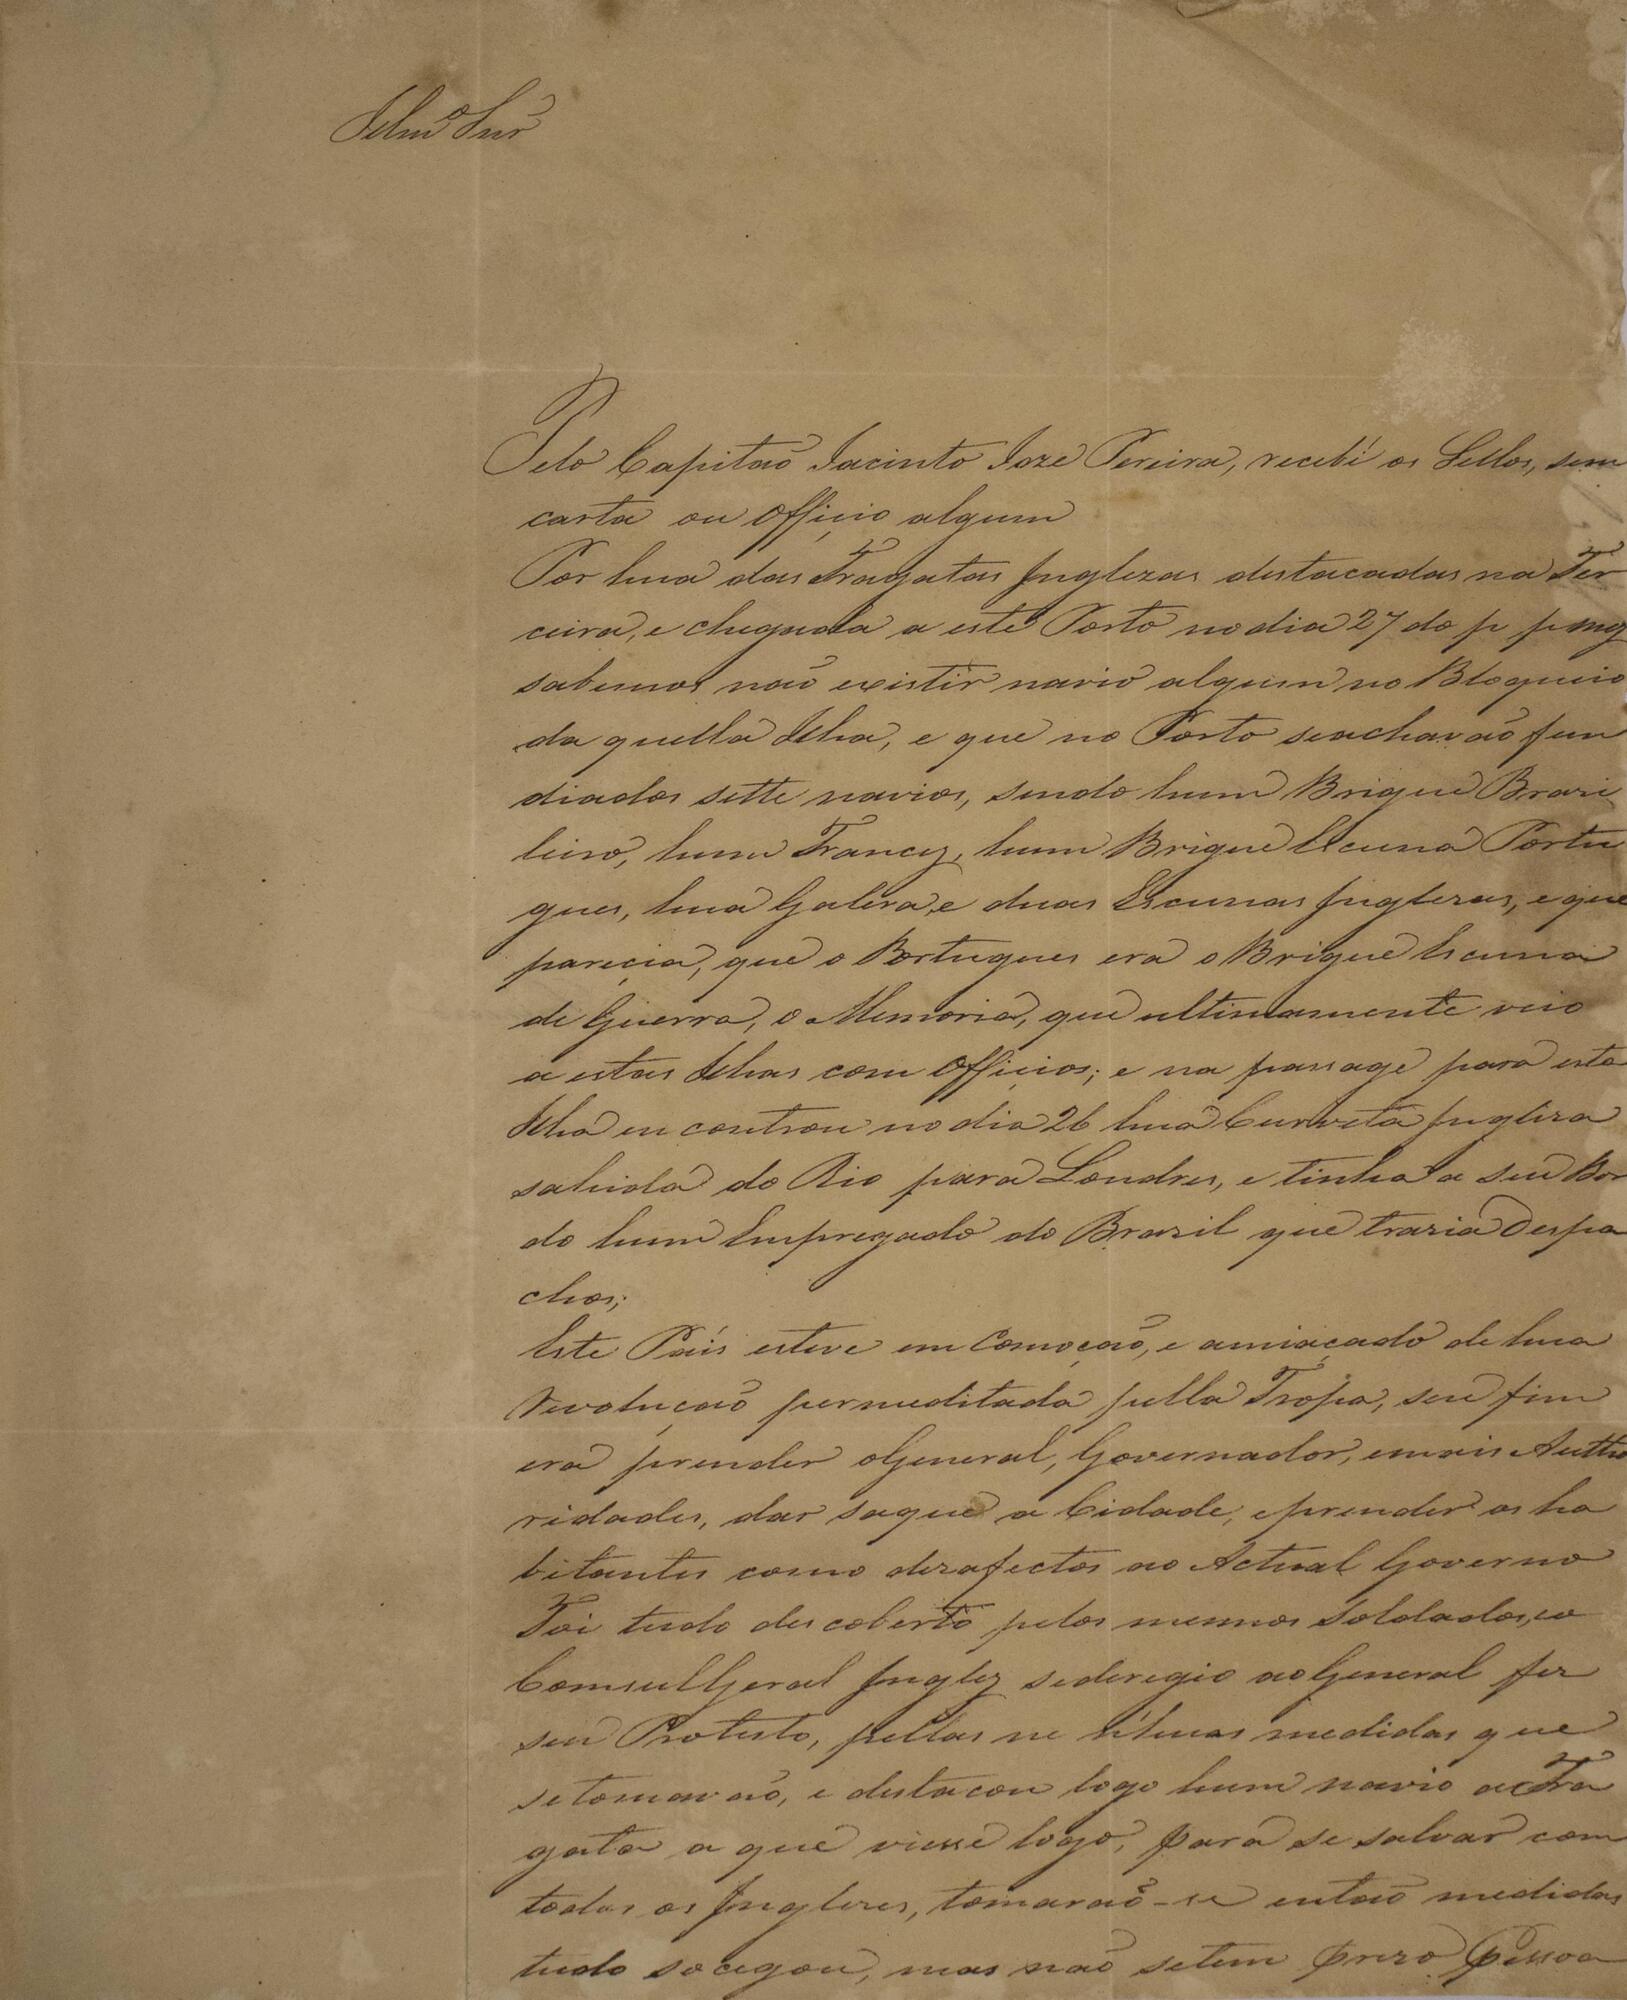 Illmo Snr
Pelo Capitaõ Jacinto Joze Pereira, recebí os Sellos, sem
carta ou Officio algum
Por hua das Fragatas Inglezas destacadas na Ter
ceira, e chegada a este Porto no dia 27 do p p
sabemos naõ existir navio algum no Bloqueio
da quella Ilha, e que no Porto seachavaõ fun
diados sette navios, sendo hum Brigue Brazi
leiro, hum Francez, hum Brigue Escuna Portu
gues, hua Galera, e duas Escunas Inglezas, e que
pareçia, que o Portugues era o Brigue Escuna
de Guerra, o Memoria, que ultimamente veio
a estas Ilhas com Offiçios; e na passage para esta
Ilha en controu no dia 26 hua Curveta Ingleza
sahida do Rio para Londres, e tinha a seu Bor
do hum Empregado do Brazil que trazia Despa
chos;
Este País esteve em Comoçaõ, e amiaçado de hua
Revoluçaõ permeditada pella Tropa, seu fim
era prender oGeneral, Governador, emais Autho
ridades, dar saque a Cidade, eprender os ha
bitantes como dezafectos ao Actual Governo
Foi tudo des coberto pelos mesmos Soldados, eo
ComsulGeral Inglez sederegio aoGeneral fez
seu Protesto, pellas ne medidas que
setomavaõ, e destacou logo hum navio aFra
gata a que viesse logo, para se salvar com
todos os Inglezes, tomaraõ-se entaõ medidas
tudo socegou, mas naõ setem prezo Pessoa